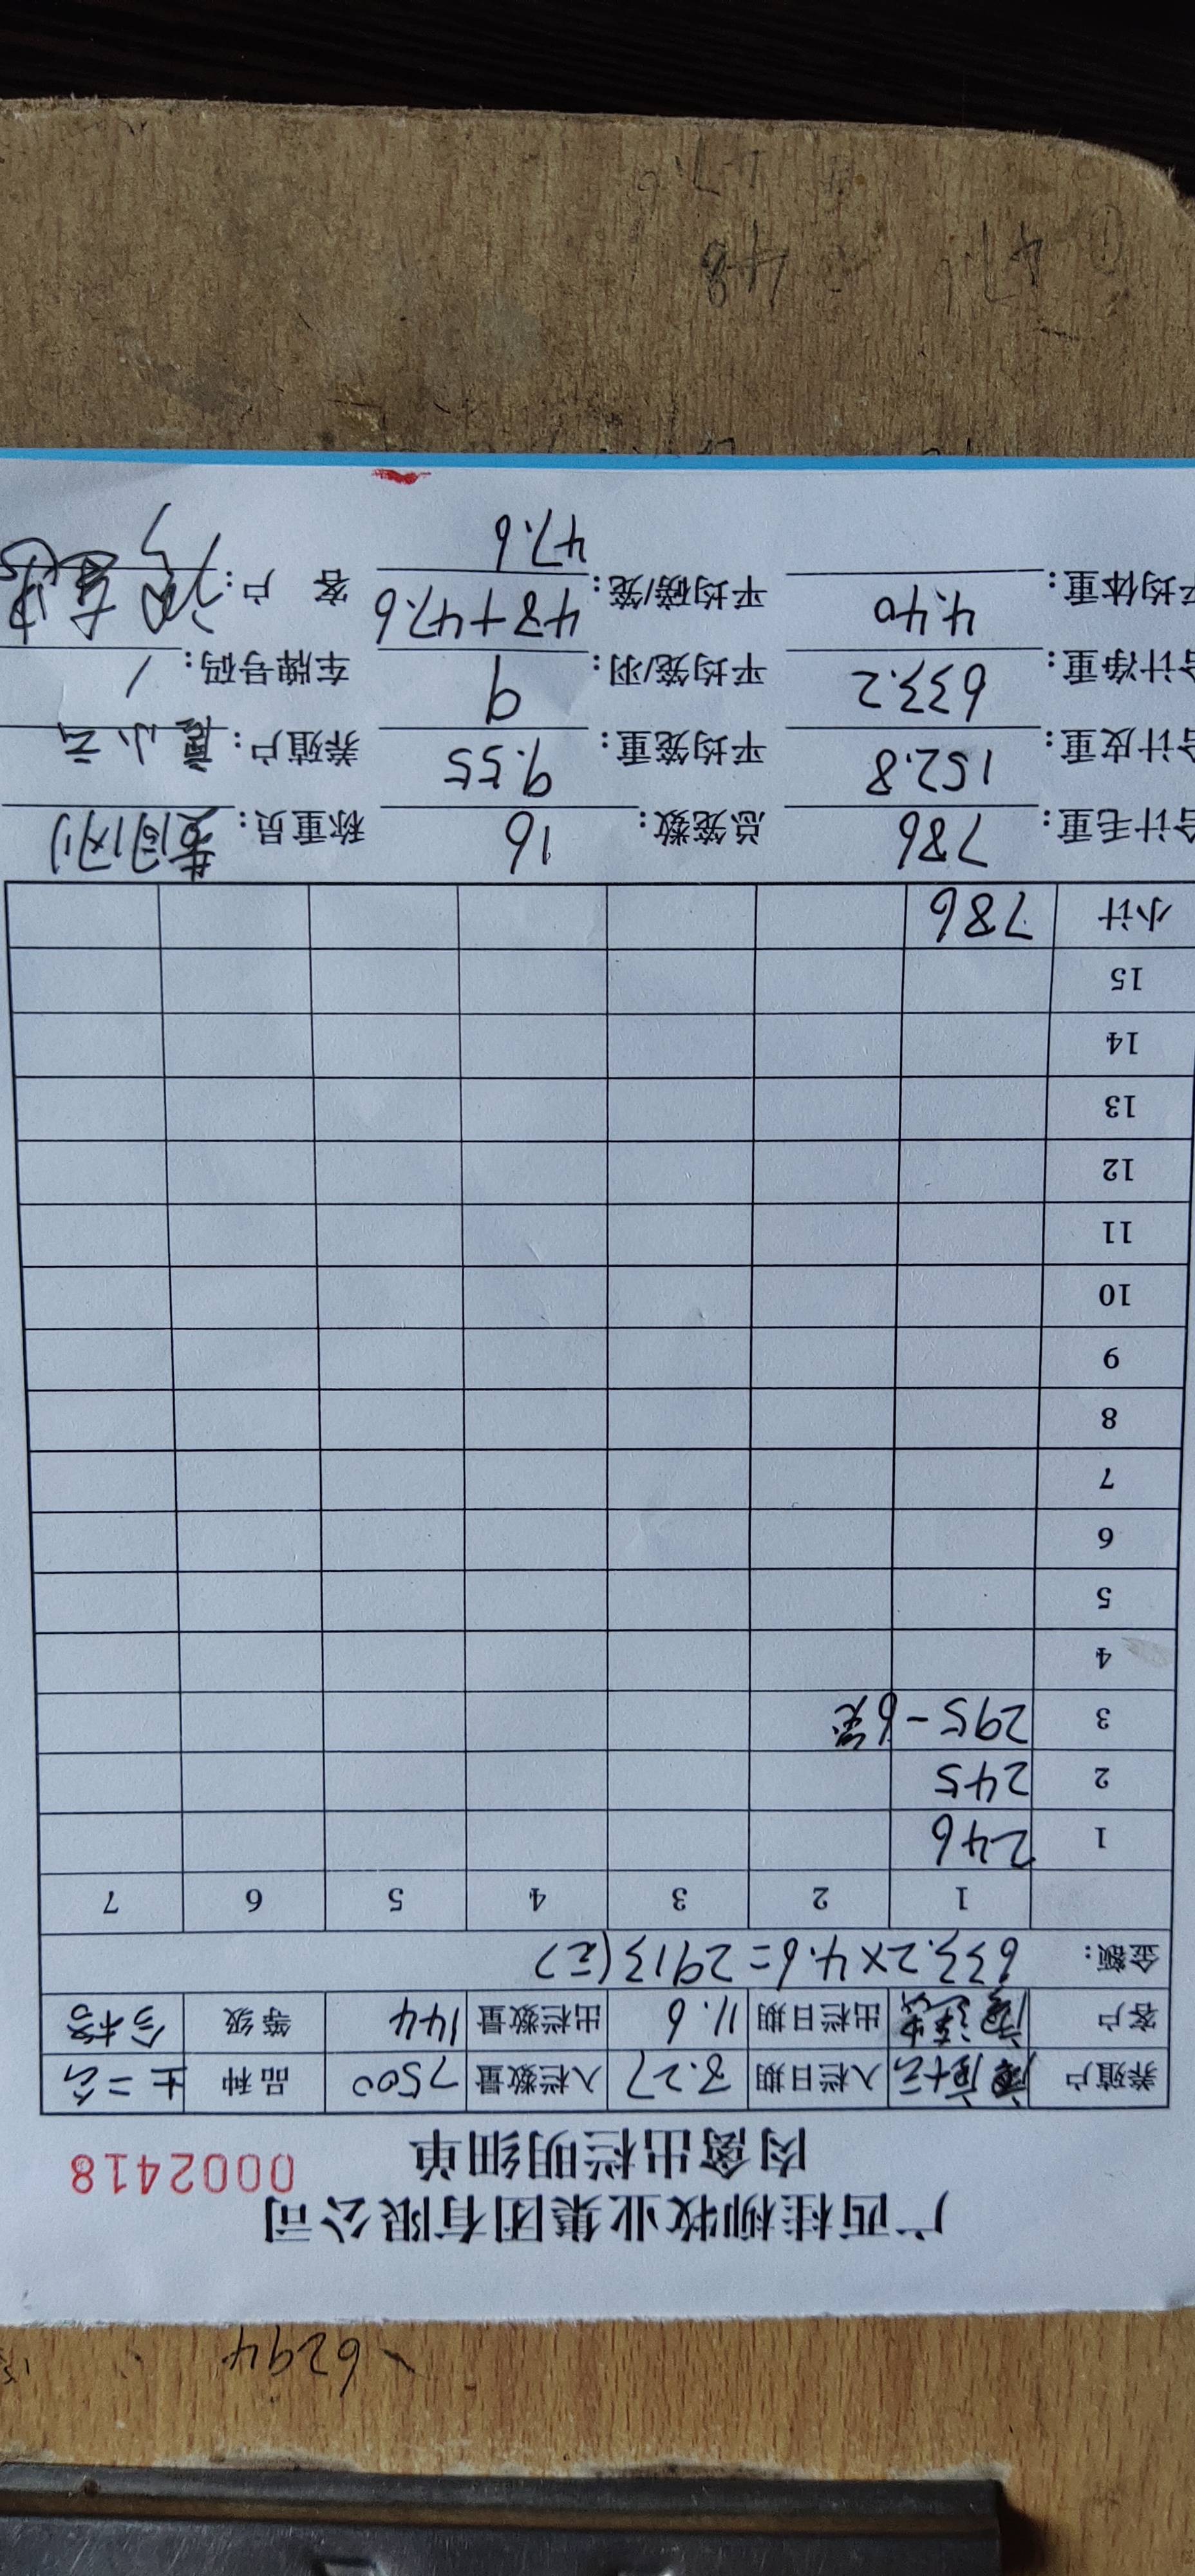 广西桂柳牧业集团有限公司
肉禽出栏明细单 0002418
养殖户 入栏日期 8.27 入栏数量 7500 品种 土二公
客户 出栏日期 11.6 出栏数量 144 等级 合格
金额: 633.2×4.6=2913(元)
1 2 3 4 5 6 7
1 246
2 245
3 295-6笼
4
5
6
7
8
9
10
11
12
13
14
15
小计 786
合计毛重: 786 总笼数: 16 称重员:
合计皮重: 152.8 平均笼重: 9.55 养殖户: 小云
合计净重: 633.2 平均笼/羽: 9 车牌号码: /
平均体重: 4.40 平均磅/笼: 48+47.6 客 户:
47.6
48
6294